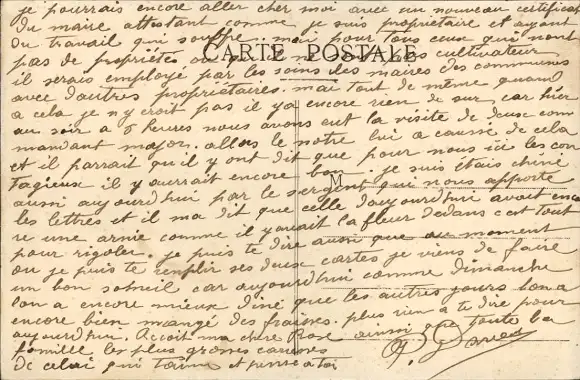 je pourrais encore aller cher moi avec un nouveau certificat
du maire attestant comme je suis propriétaire et ayant
du travail qui souffre. mai pour tous ceux qui nont
CARTE POSTALE
pas de propriétés ou qui ne sont pas cultivateur
il serais employé par les soins des maires des communes
avec dautres propriétaires. mai tout de même quand
a cela je n y croit pas il ya encore rien de sur, car hier
au soir a 5 heures nous avons eut la visite de deux com
mandant major. allors le notre lui a causé de cela
et il parrait qu'il y ont dit que pour nous ici les con
tagieux il y aurrait encore bon. je suis étais chiné
aussi aujourd'hui par le sergent qui nous apporte
les lettres et il ma dit que celle daujourdhui avait enco
re une armie comme il y avait la fleur dedans cest tout
pour rigoler. je puis te dire aussi que au moment
ou je puis te remplir ses deux cartes je viens de faire
un bon someil car aujourdhui comme dimanche
lon a encore mieux diné que les autres jours lon a
encore bien mangé des fraises. plus rien a te dire pour
aujourdhui. Reçoit ma chère Rose ainsi que toute la
famille les plus grosses caresses
de celui qui taime et pense a toi
M